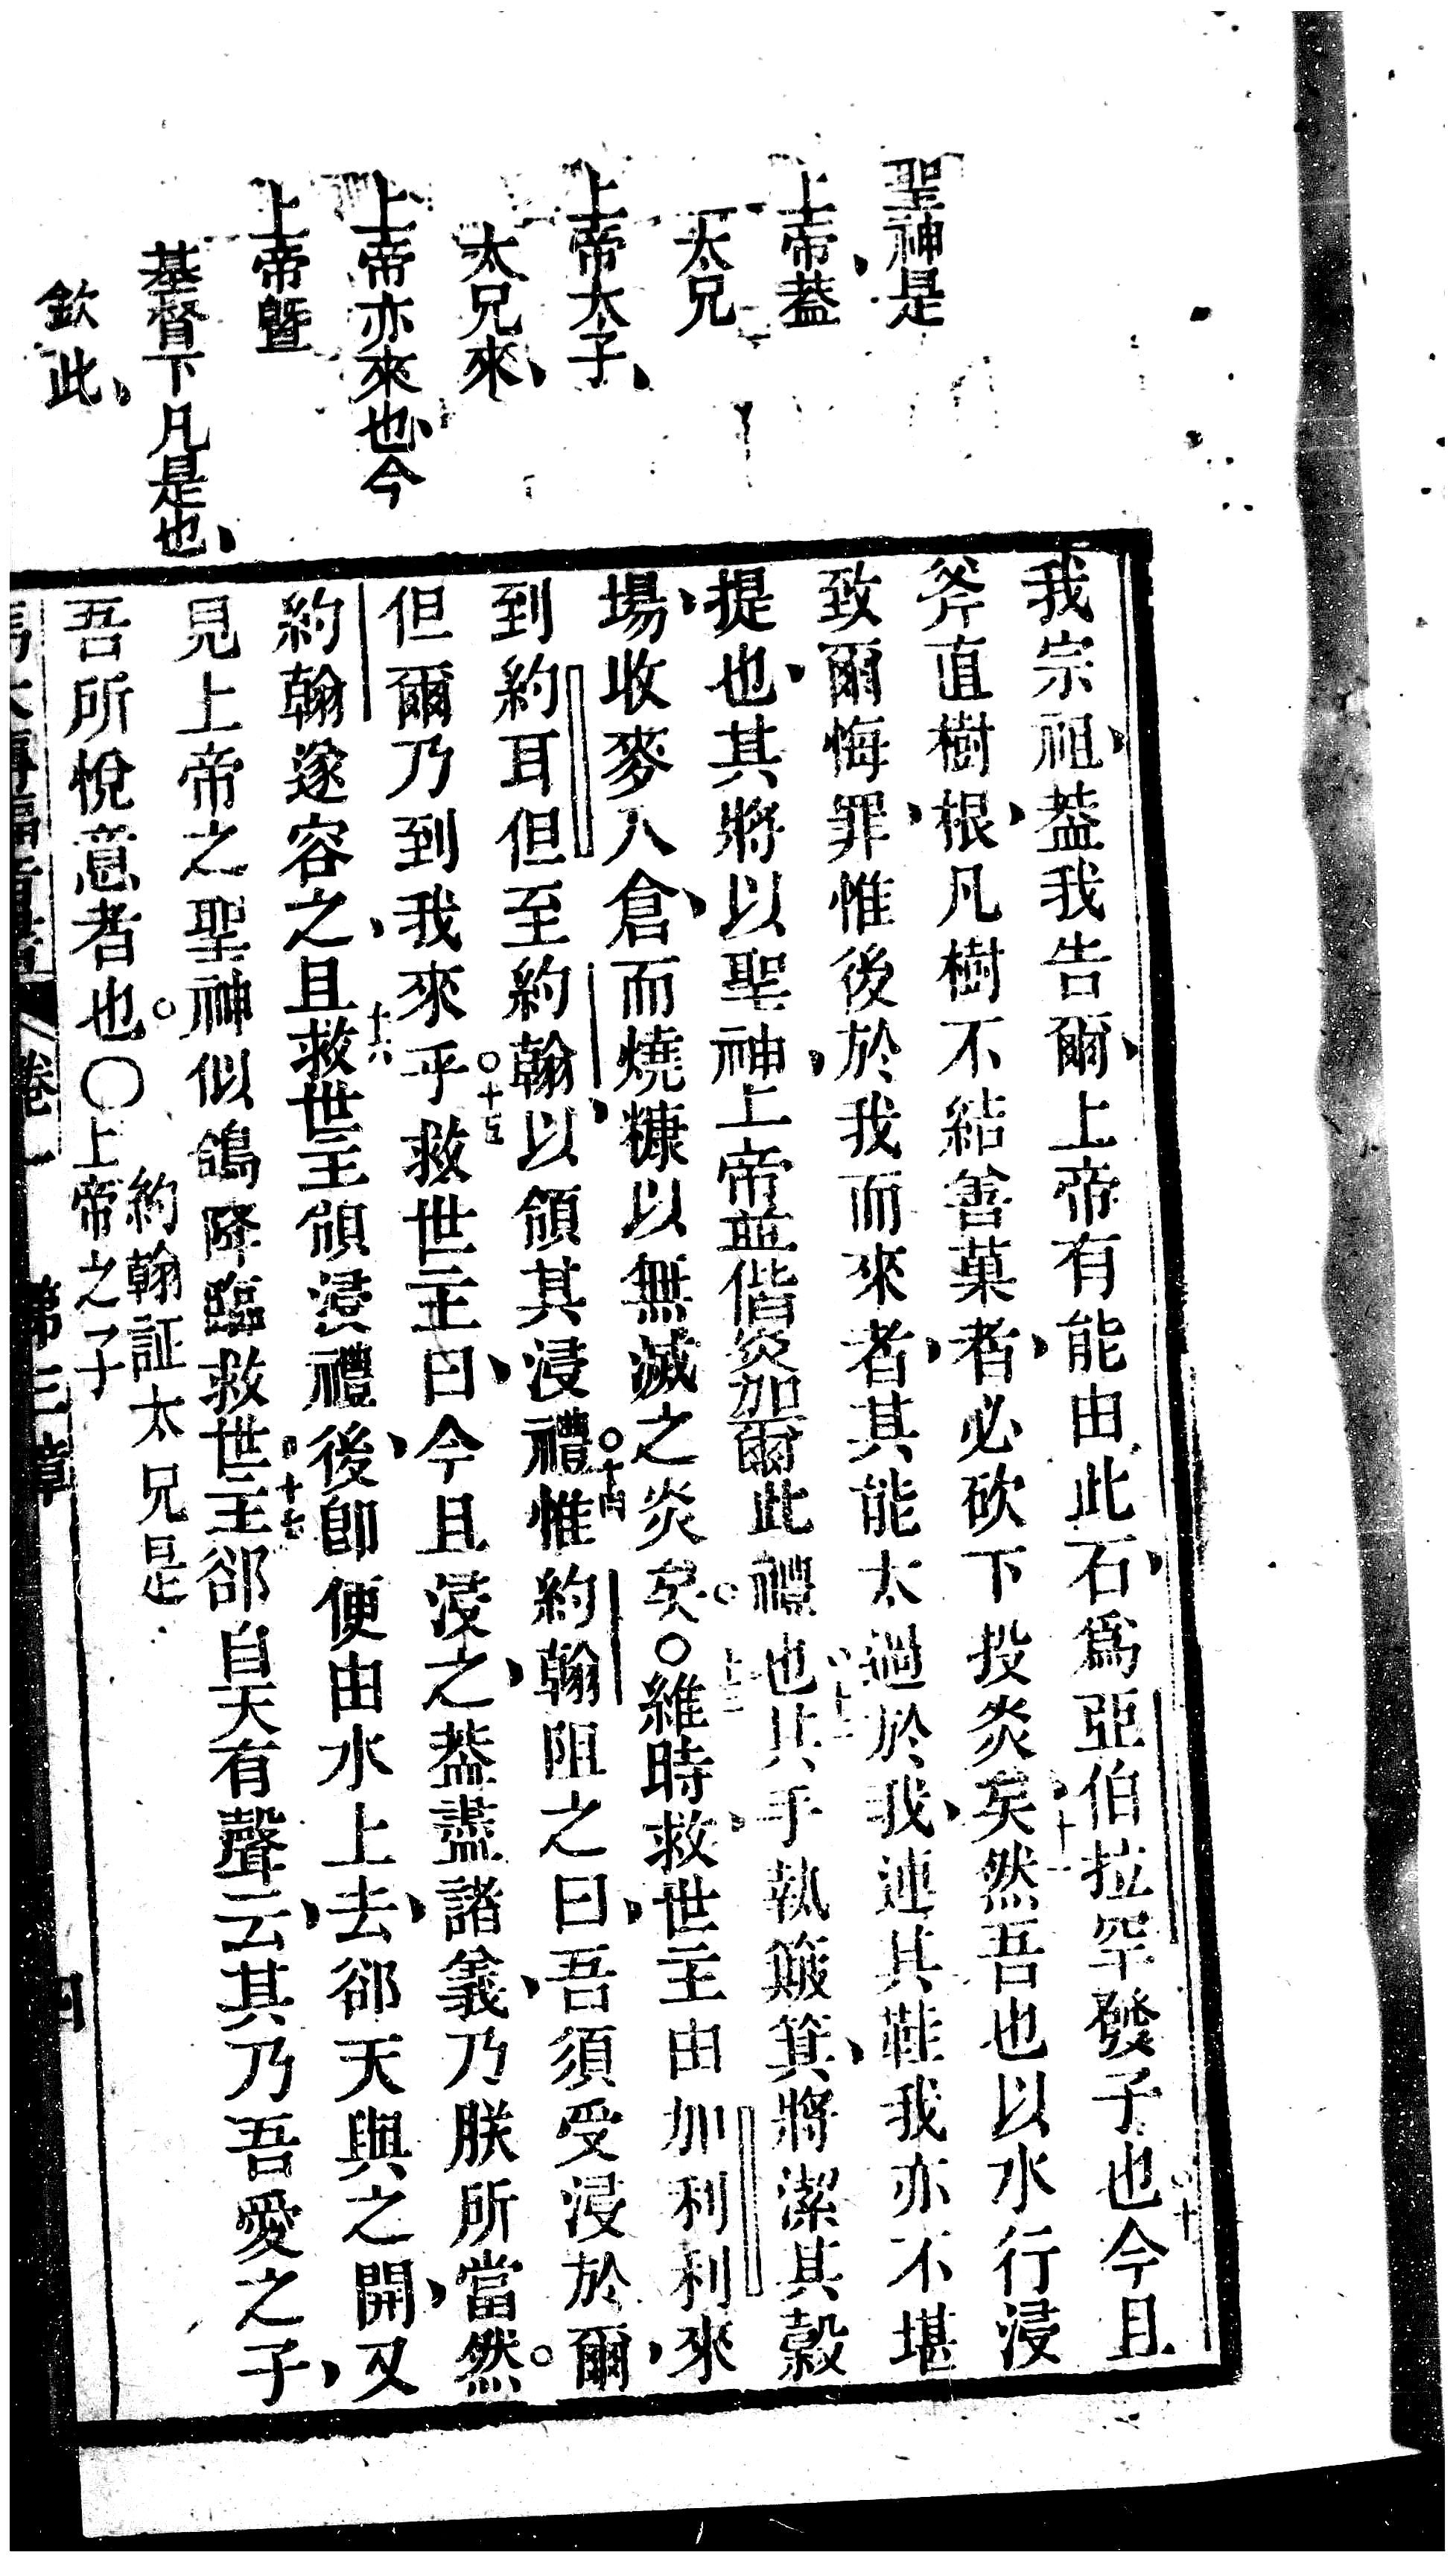 聖神是
上帝、蓋
太兄
上帝太子、
太兄來、
上帝亦來也、今
上帝曁
基督下凡是也、
欽此、
我宗祖、葢我告爾、上帝有能由此石、爲亞伯拉罕發子也、十今且
斧直樹根、凡樹不結善菓者、必砍下投炎矣、十一然吾也以水行浸
致爾悔罪、惟後於我而來者、其能太過於我、連其鞋我亦不堪
提也、其將以聖神、上帝並偕炎加爾此禮也、十二其手執簸箕、將潔其穀
場、收麥入倉、而燒糠以無滅之炎矣。○十三維時、救世主由加利利來
到約耳但、至約翰、以領其浸禮。十四惟約翰阻之曰、吾須受浸於爾、
但爾乃到我來乎。十五救世主曰、今且浸之、葢盡諸義、乃朕所當然。
約翰遂容之、十六且救世主領浸禮後、卽便由水上去、郤天與之開、又
見上帝之聖神似鴿降臨救世主、十七郤自天有聲云、其乃吾愛之子、
吾所悅意者也。○約翰証太兄是
上帝之子
卷一 第三章 四